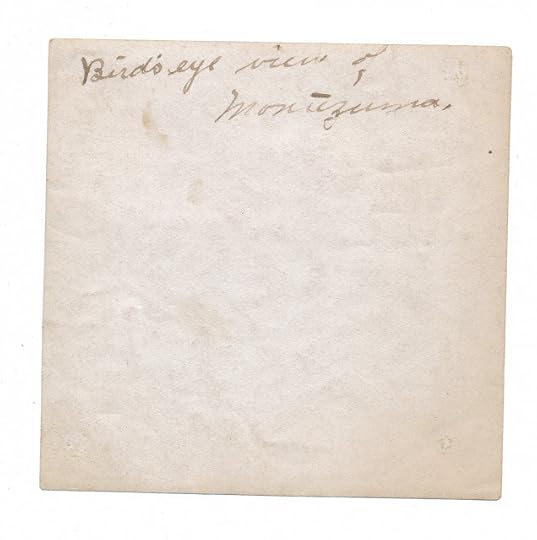 Bird's eye view of
Montezuma.